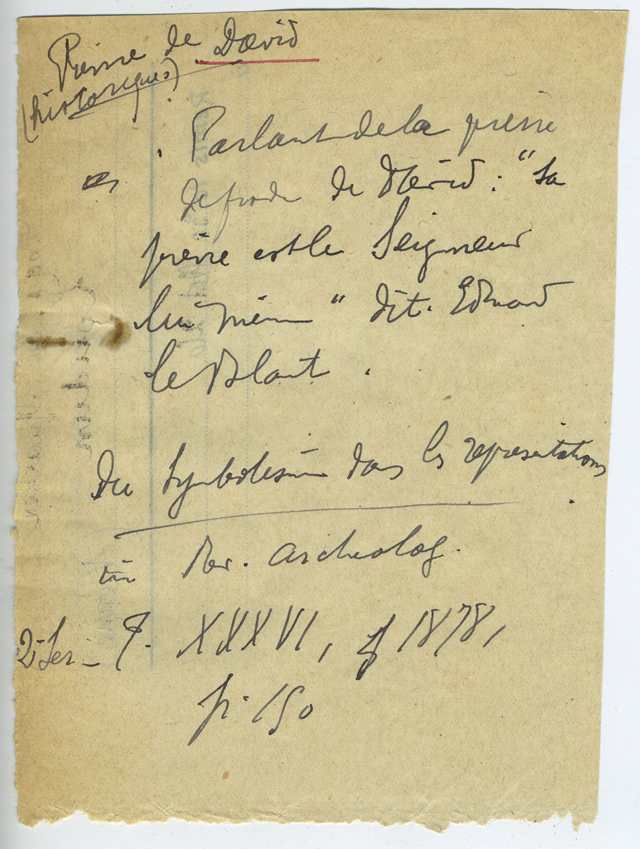 Pierre de David
(historiques)
Parlant de la pierre
de fronde de David : "La
pierre est le Seigneur
lui même" dit. Edmond
le Blant.
Du symbolisme dans les représentations
in Rev. archeolog.
2e Ser_ T. XXXVI, 1878,
p. 150